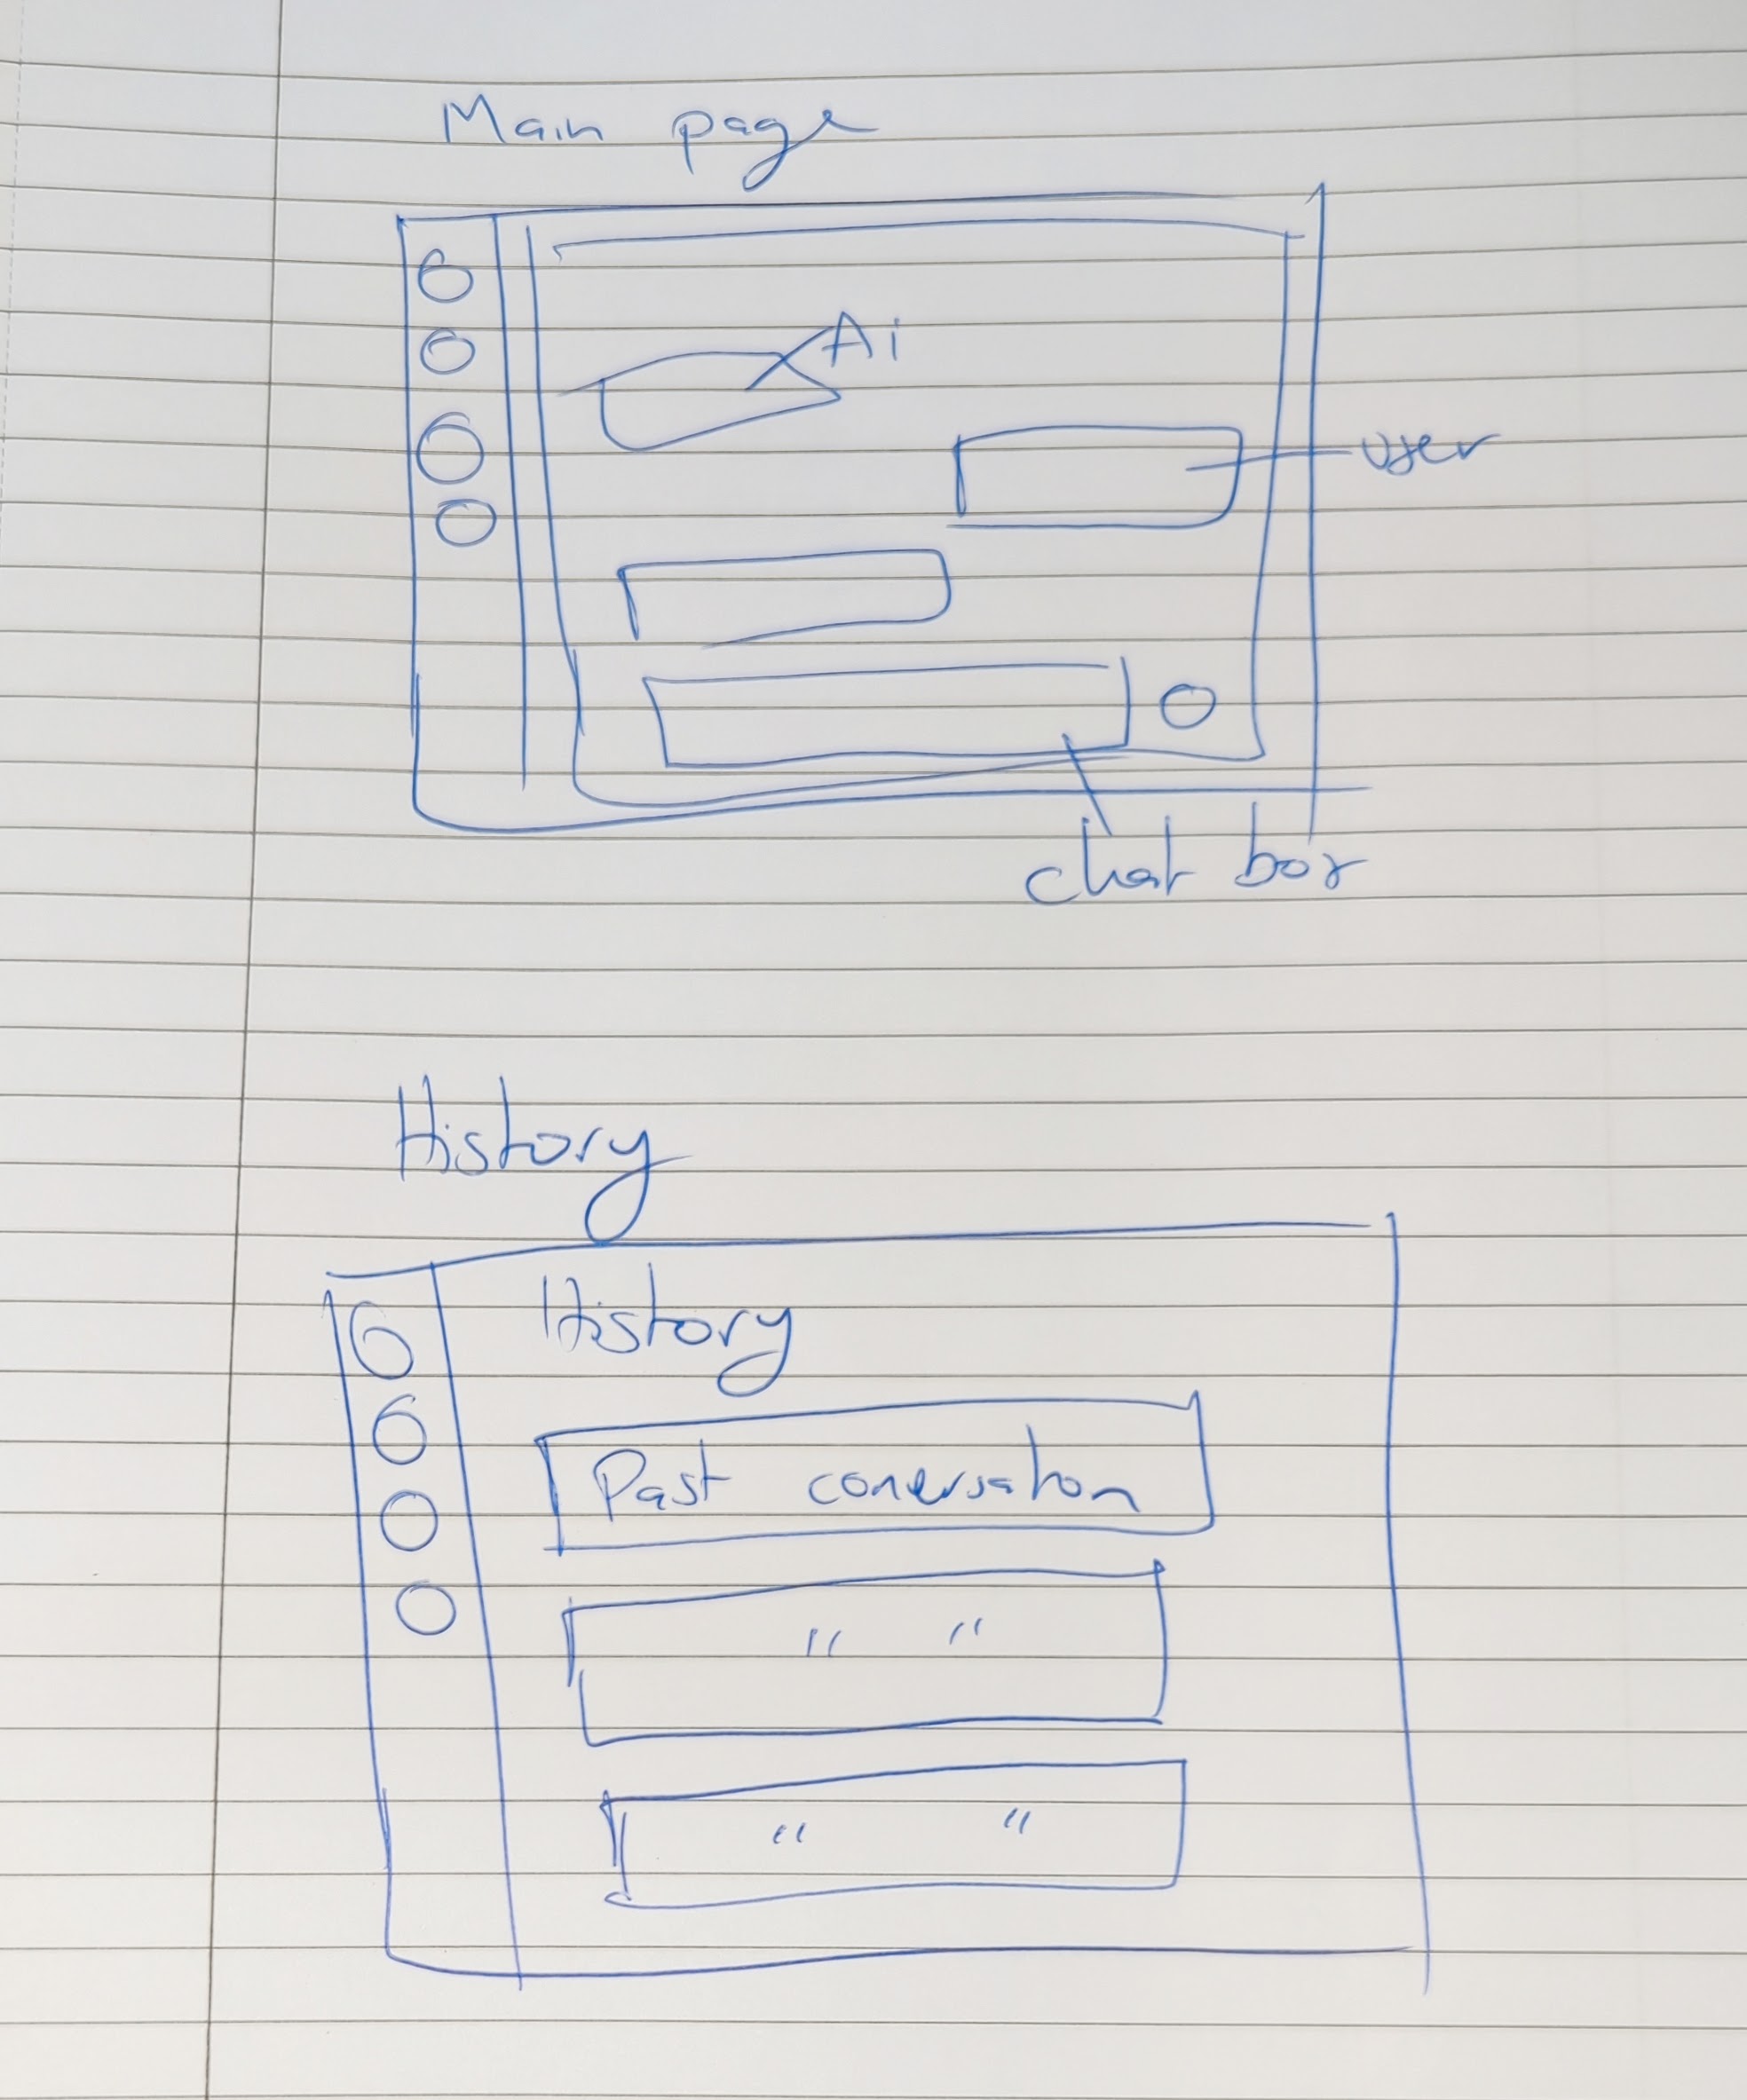 Main page
Ai
user
chat box
History
History
Past conersation
" "
" "